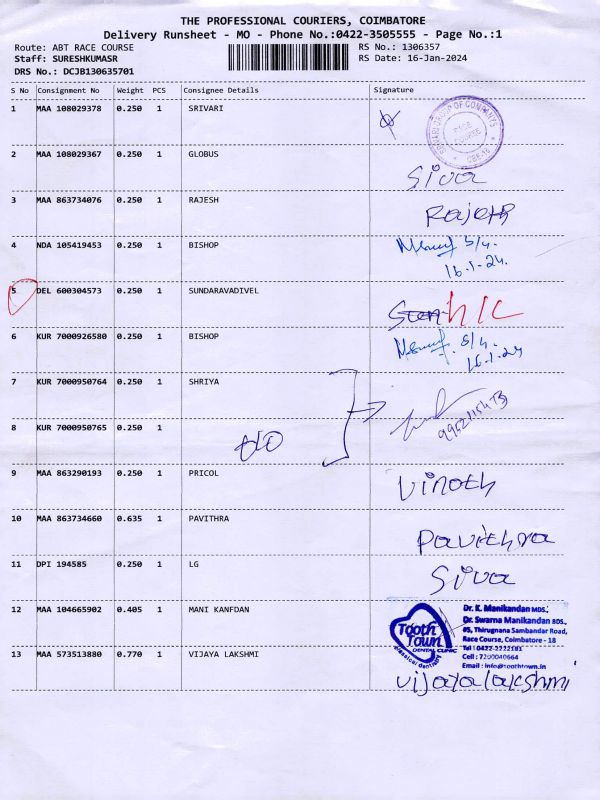 THE PROFESSIONAL COURIERS, COIMBATORE
Delivery Runsheet - MO - Phone No.:0422-3505555 - Page No.:1
Route: ABT RACE COURSE
RS No.: 1306357
Staff: SURESHKUMASR
RS Date: 16-Jan-2024
DRS No.: DCJB130635701
S No Consignment No Weight PCS Consignee Details Signature
1 MAA 108029378 0.250 1 SRIVARI
SRIVARI GROUP OF COMPANYS
RACE COURSE
CBE-18
2 MAA 108029367 0.250 1 GLOBUS
Siva
3 MAA 863734076 0.250 1 RAJESH
Rajesh
4 NDA 105419453 0.250 1 BISHOP
S/4.
16.1.24.
5 DEL 600304573 0.250 1 SUNDARAVADIVEL
N/C
6 KUR 7000926580 0.250 1 BISHOP
S/4.
16.1.24
7 KUR 7000950764 0.250 1 SHRIYA
8 KUR 7000950765 0.250 1
9 MAA 863290193 0.250 1 PRICOL
Vinoth
10 MAA 863734660 0.635 1 PAVITHRA
Pavithra
11 DPI 194585 0.250 1 LG
Siva
12 MAA 104665902 0.405 1 MANI KANFDAN
Tooth Town
DENTAL CLINIC
Dr. K. Manikandan MDS.,
Dr. Swarna Manikandan BDS.,
#5, Thirugnana Sambandar Road,
Race Course, Coimbatore - 18
Tel : 0422-2222181
Cell : 7200040664
Email : info@toothtown.in
13 MAA 573513880 0.770 1 VIJAYA LAKSHMI
vijayalakshmi